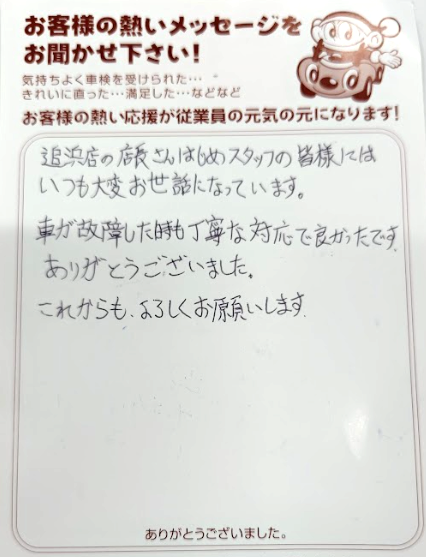 お客様の熱いメッセージを
お聞かせ下さい!
気持ちよく車検を受けられた…
きれいに直った…満足した…などなど
お客様の熱い応援が従業員の元気の元になります!
追浜店の店長さんはじめスタッフの皆様には
いつも大変お世話になっています。
車が故障した時も丁寧な対応で良かったです.
ありがとうございました。
これからも、よろしくお願いします.
ありがとうございました。